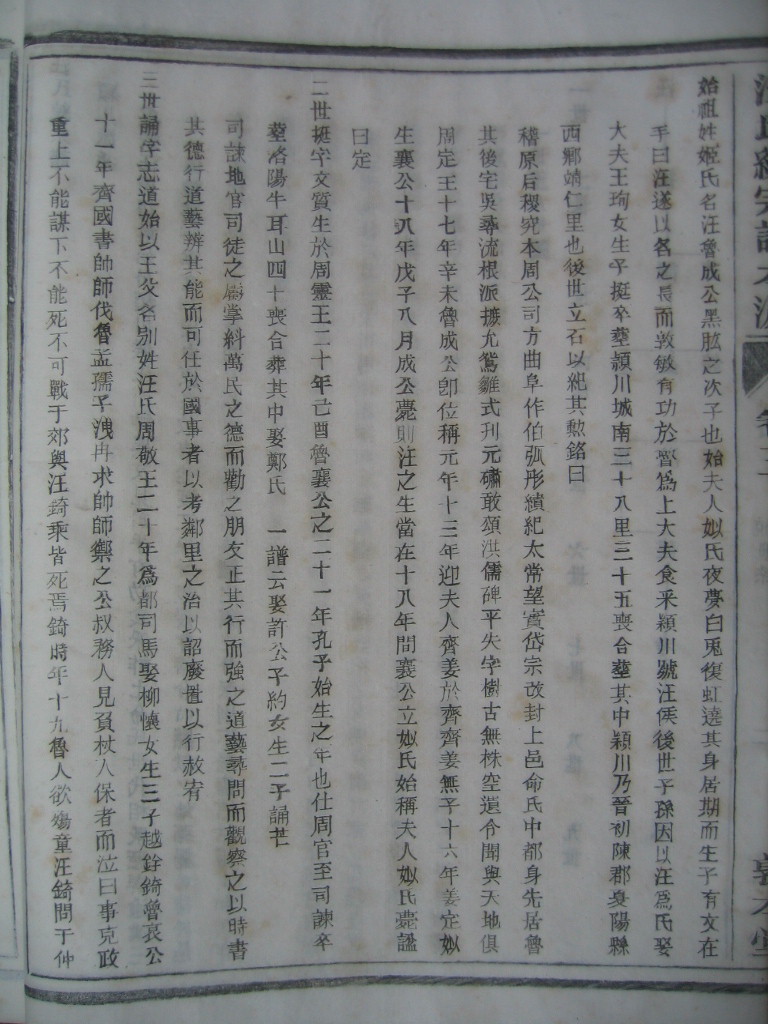 始祖姓姬氏名汪魯成公黑肱之次子也始夫人姒氏夜夢白兎復虹遶其身居期而生子有文在
手曰汪遂以名之長而敦敏有功於晉爲上大夫食釆潁川號汪侯後世子孫因以汪爲氏娶
大夫王珣女生子挺卒塟潁川城南三十八里三十五喪合塟其中潁川乃晉初陳郡襄陽縣
西鄉靖仁里也後世立石以紀其勲銘曰
稽原后稷究本周公司方曲阜作伯弧彤績紀太常望實岱宗改封上邑命氏中都身先居魯
其後宅吳尋流根派摭允鴛雛式刊元礴敢頌洪儒碑平失字樹古無株空遺令聞與天地俱
周定王十七年辛未魯成公卽位稱元年十三年迎夫人齊姜於齊齊姜無子十六年姜定姒
生襄公十八年戊子八月成公薨則汪之生當在十八年間襄公立姒氏始稱夫人姒氏薨諡
曰定
二世挺字文質生於周靈王二十年亡酉魯襄公之二十一年孔子始生之年也仕周官至司諫卒
塟洛陽牛耳山四十喪合葬其中娶鄭氏 一譜云娶許公子約女生二子誦芒
司諫地官司徒之屬掌糾萬民之德而勸之朋友正其行而強之道藝尋問而觀察之以時書
其德行道藝辨其能而可任於國事者以考鄰里之治以詔廢置以行赦宥
三世誦字志道始以王父名别姓汪氏周敬王二十年爲都司馬娶柳懷女生三子越銓錡魯哀公
十一年齊國書帥師伐魯孟孺子洩冉求帥師禦之公叔務人見負杖入保者而泣曰事充政
重上不能謀下不能死不可戰于郊與汪錡乘皆死焉錡時年十九魯人欲殤童汪錡問于仲
汪氏統宗譜
卷三